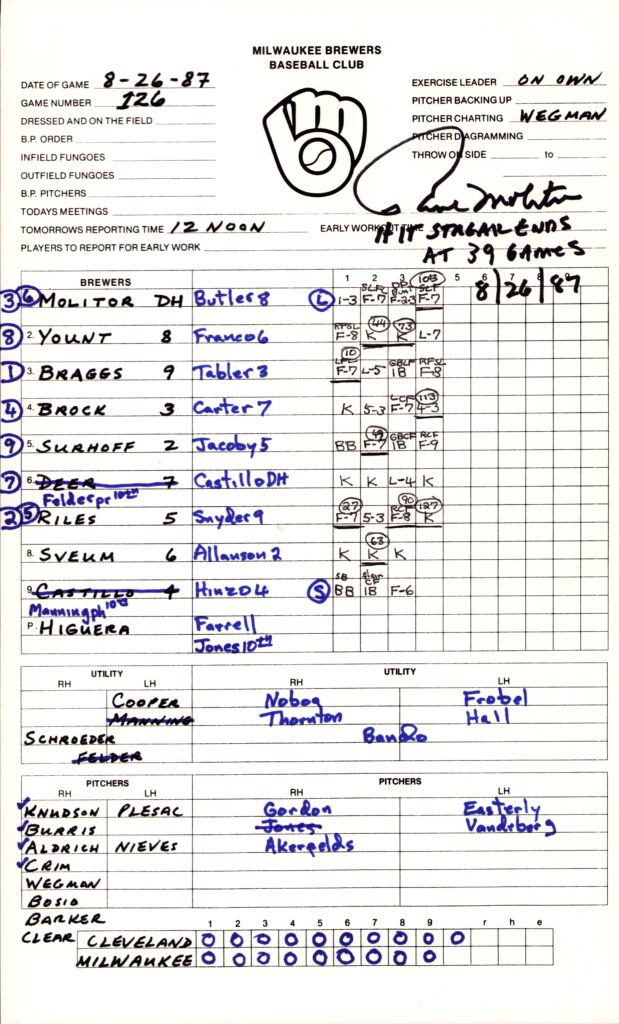 MILWAUKEE BREWERS
BASEBALL CLUB
DATE OF GAME 8-26-87
GAME NUMBER 126
DRESSED AND ON THE FIELD
B.P. ORDER
INFIELD FUNGOES
OUTFIELD FUNGOES
B.P. PITCHERS
TODAYS MEETINGS
TOMORROWS REPORTING TIME 12 NOON
PLAYERS TO REPORT FOR EARLY WORK
EXERCISE LEADER ON OWN
PITCHER BACKING UP
PITCHER CHARTING WEGMAN
PITCHER DIAGRAMMING
THROW ON SIDE to
Paul Molitor
EARLY WORKOUT TIME
HIT STREAK ENDS
AT 39 GAMES
BREWERS 1 2 3 5 6 7 8 9
8/26/87
3 6 MOLITOR DH Butler 8 L 1-3 F-7 F-2-3 103 F-7
8 2. YOUNT 8 Franco 6 RFSL F-8 44 K 73 K L-7
1 3. BRAGGS 9 Tabler 3 10 F-7 L-5 1B RFSL F-8
4 4. BROCK 3 Carter 7 K 5-3 LCF F-7 113 4-3
9 5. SURHOFF 2 Jacoby 5 BB 49 F-7 GBCF 1B RCF F-9
7 6. DEER 7 Castillo DH K K L-4 K
Felder pr 10th
2 5 RILES 5 Snyder 9 27 F-7 5-3 90 RCF F-8 127 K
8. SVEUM 6 Allanson 2 K 63 K K
9. CASTILLO 4 Hinzo 4 S SB BB CF 1B F-6
Manning ph 10th
P. HIGUERA Farrell
Jones 10th
UTILITY UTILITY
RH LH RH LH
COOPER Noboa Frobel
MANNING Thornton Hall
SCHROEDER Bando
FELDER
PITCHERS PITCHERS
RH LH RH LH
KNUDSON PLESAC Gordon Easterly
BURRIS Jones Vandeberg
ALDRICH NIEVES Akerfelds
CRIM
WEGMAN
BOSIO
BARKER
1 2 3 4 5 6 7 8 9 r h e
CLEAR CLEVELAND 0 0 0 0 0 0 0 0 0 0
MILWAUKEE 0 0 0 0 0 0 0 0 0